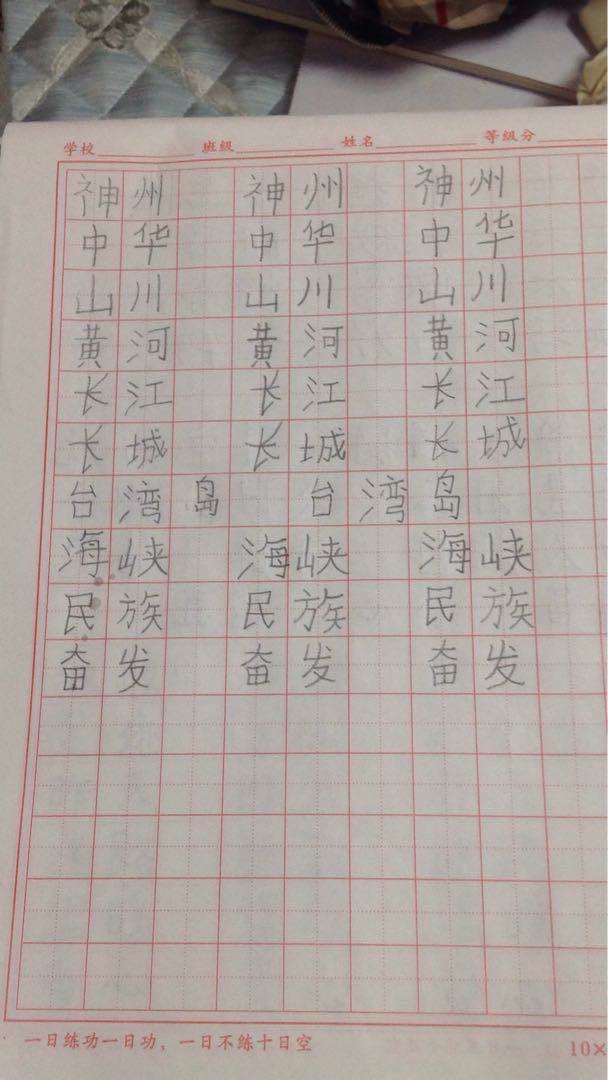 学校 班级 姓名 等级分
神州 神州 神州
中华 中华 中华
山川 山川 山川
黄河 黄河 黄河
长江 长江 长江
长城 长城 长城
台湾岛 台湾岛
海峡 海峡 海峡
民族 民族 民族
奋发 奋发 奋发
一日练功一日功，一日不练十日空 10×